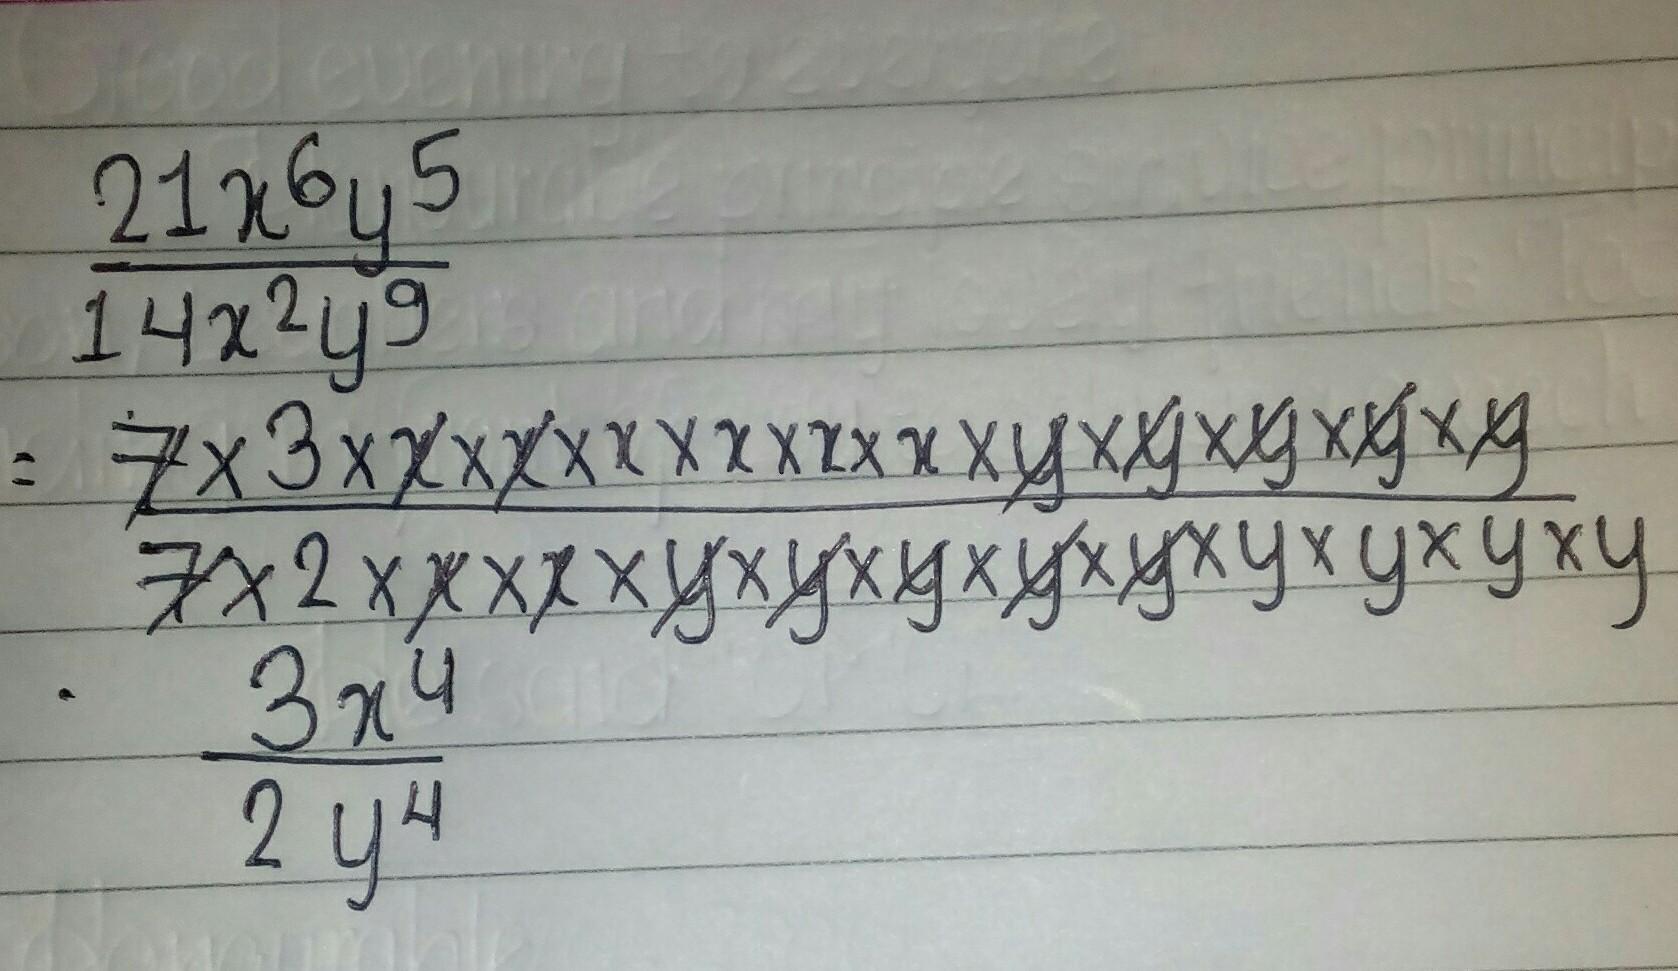 21x⁶y⁵
14x²y⁹
= 7×3×x×x×x×x×x×x×y×y×y×y×y
7×2×x×x×y×y×y×y×y×y×y×y×y
3x⁴
2y⁴